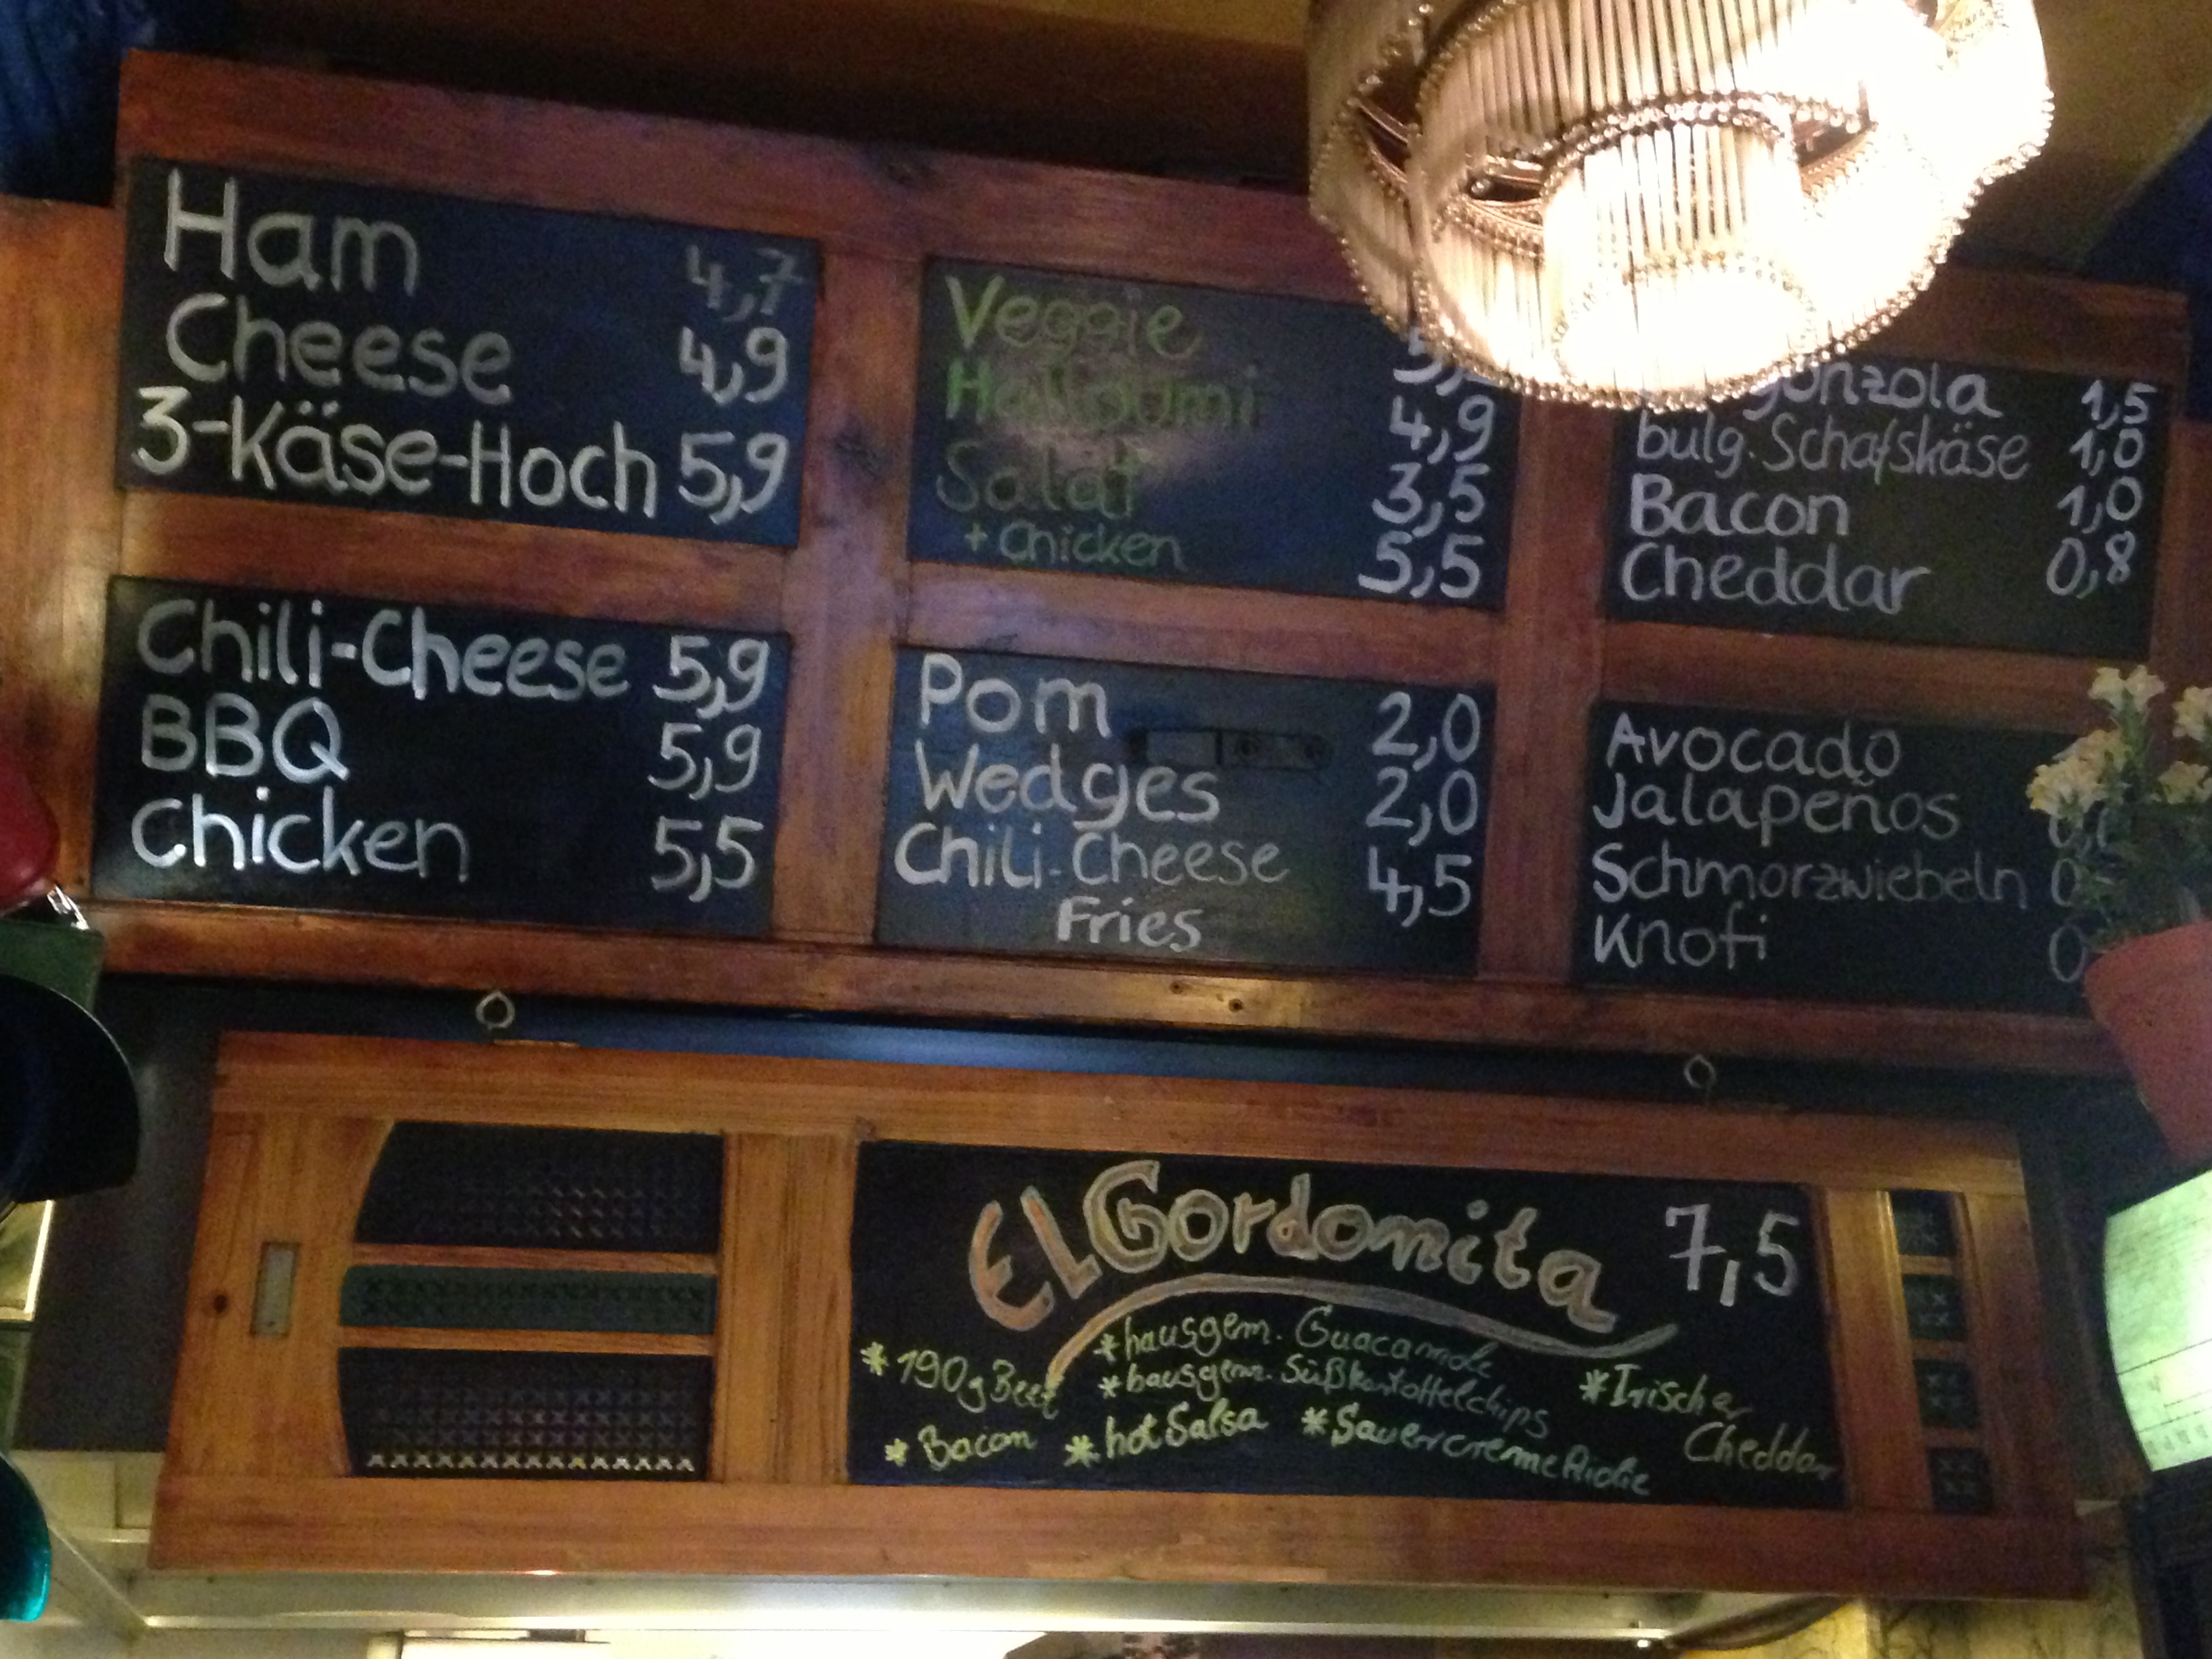 Ham 4,7
Cheese 4,9
3-Käse-Hoch 5,9
Chili-Cheese 5,9
BBQ 5,9
Chicken 5,5
Veggie
Halloumi 4,9
Salat 3,5
+ Chicken 5,5
Pom 2,0
Wedges 2,0
Chili-Cheese 4,5
Fries
1,5
bulg. Schafskäse 1,0
Bacon 1,0
Cheddar 0,8
Avocado
Jalapeños
Schmorzwiebeln
Knofi
El Gordomita 7,5
*hausgem. Guacamole
*190g Beef *hausgem. Süßkartoffelchips *Irischer
*Bacon *hot Salsa Cheddar